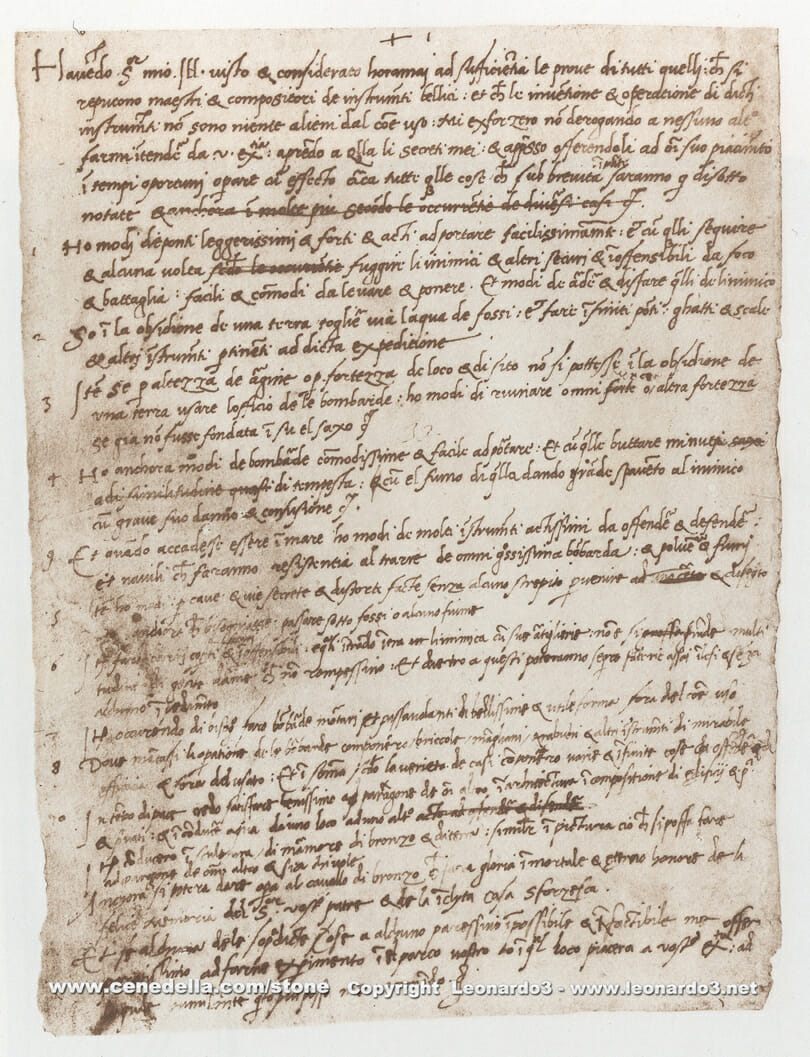 +
Havēdo Sʳ mio Ill. visto & considerato horamai ad sufficientia le prove di tutti quelli ch̄ si
reputono maestri & compositori de instrumti bellici: et ch̄ le inventione & operatione di dicti
instrumti nō sono niente alieni dal cōe uso: Mi exforzero nō derogando a nessuno altº
farmi ītendē da v. exᵗⁱᵃ: aprēdo a qlla li secreti mei: & apṣso offerendoli ad oī suo piacimēto
ī tempi oportuni operare cū effecto circa tutte qlle cose ch̄ sub brevita saranno q disotto
notate & anchora ī molte piu secōdo le occurrentie de diversi casi
1 Ho modi de ponti leggerissimi & forti & acti ad portare facilissimamte: et cū qlli seguire
& alcuna volta fuggire li inimici & altri securi & īoffensibili da foco
& battaglia: facili & cōmodi da levare & ponere. Et modi de ardē & disfare qlli de linimico
2 So ī la obsidione de una terra toglie via laqua de fossi: et fare īfiniti pōti ghatti & scale
& altri īstrumti ptinēti ad dicta expeditione
3 Itē se p altezza de argine o p fortezza de loco & di sito nō si pottesse ī la obsidione de
una terra usare lofficio de le bombarde: ho modi di ruinare omni forte o altra fortezza
se gia nō fusse fondata ī su el saxo
4 Ho anchora modi de bombarde cōmodissime & facile ad portare: Et cū qlle buttare minuti
adi similitudine quasi di tempesta: & cū el fumo di qlla dando grāde spavento al inimico
cū grave suo danno & confusione
9 Et quādo accadesse essere ī mare ho modi de molti īstrumti actissimi da offendē & defendē:
et navili ch̄ faranno resistentia al trarre de omni gṣsissima bōbarda: & polvē & fumi
5 Itē ho modi p cave & vie secrete & distorte facte senza alcuno strepito p venire ad & disegto
anchora ch̄ bisogniasse passare sotto fossi o alcuno fiume
6 Itē faro carri coperti & īoffensibili: e quali ītrādo ītra ne linimica cū sue artiglierie nō e si multi
tudine di gente darme ch̄ nō rompessino: Et dietro a questi poteranno seqre fanterie assai illesi & sēza
alchuno īpedimto
7 Itē occurrendo di bisogno faro bōbarde mortari et passavolanti di bellissime & utile forme fora del cōe uso
8 Dove mācassi la opatione de le bōbarde componero briccole manghani trabuchi & altri īstrumti di mirabile
efficacia & fora del usato: Et ī soma secōdo la varieta de casi cōponero varie & īfinite cose da offendē & dē
10 In tēpo di pace credo satisfare benissimo ad paragone de oī altro ī architectura ī compositione di edificii &
& privati: & ī conducē aqua da uno loco ad uno altº
Itē conducero ī sculptura di marmore di bronzo & di terra: similr̄ ī pictura cio ch̄ si possa fare
ad paragone de omi altro & sia chi vole
Ancora si potera dare opa al cavallo di bronzo ch̄ sara gloria īmortale & eterno honore de la
felice memoria del Sʳᵉ vostº patre & de la īclyta casa Sforzesca.
Et se alchuna de le sopdicte cose a alchuno paressino īpossibile & īfactibile me offer
paratissimo ad farne expimento ī el parco vostro o ī ql loco piacera a vostª exᵗⁱᵃ: ad
www.cenedella.com/stone Copyright Leonardo3 - www.leonardo3.net